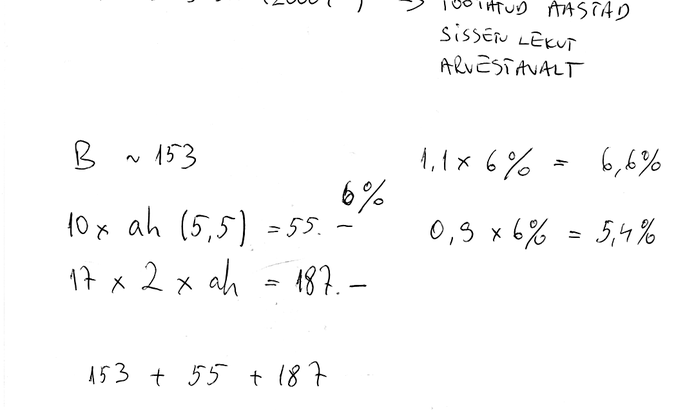 → TÖÖTATUD AASTAD
SISSETULEKUT
ARVESTAVALT
B ~ 153
1,1 x 6% = 6,6%
6%
10 x ah (5,5) = 55. –
0,9 x 6% = 5,4%
17 x 2 x ah = 187. –
153 + 55 + 187